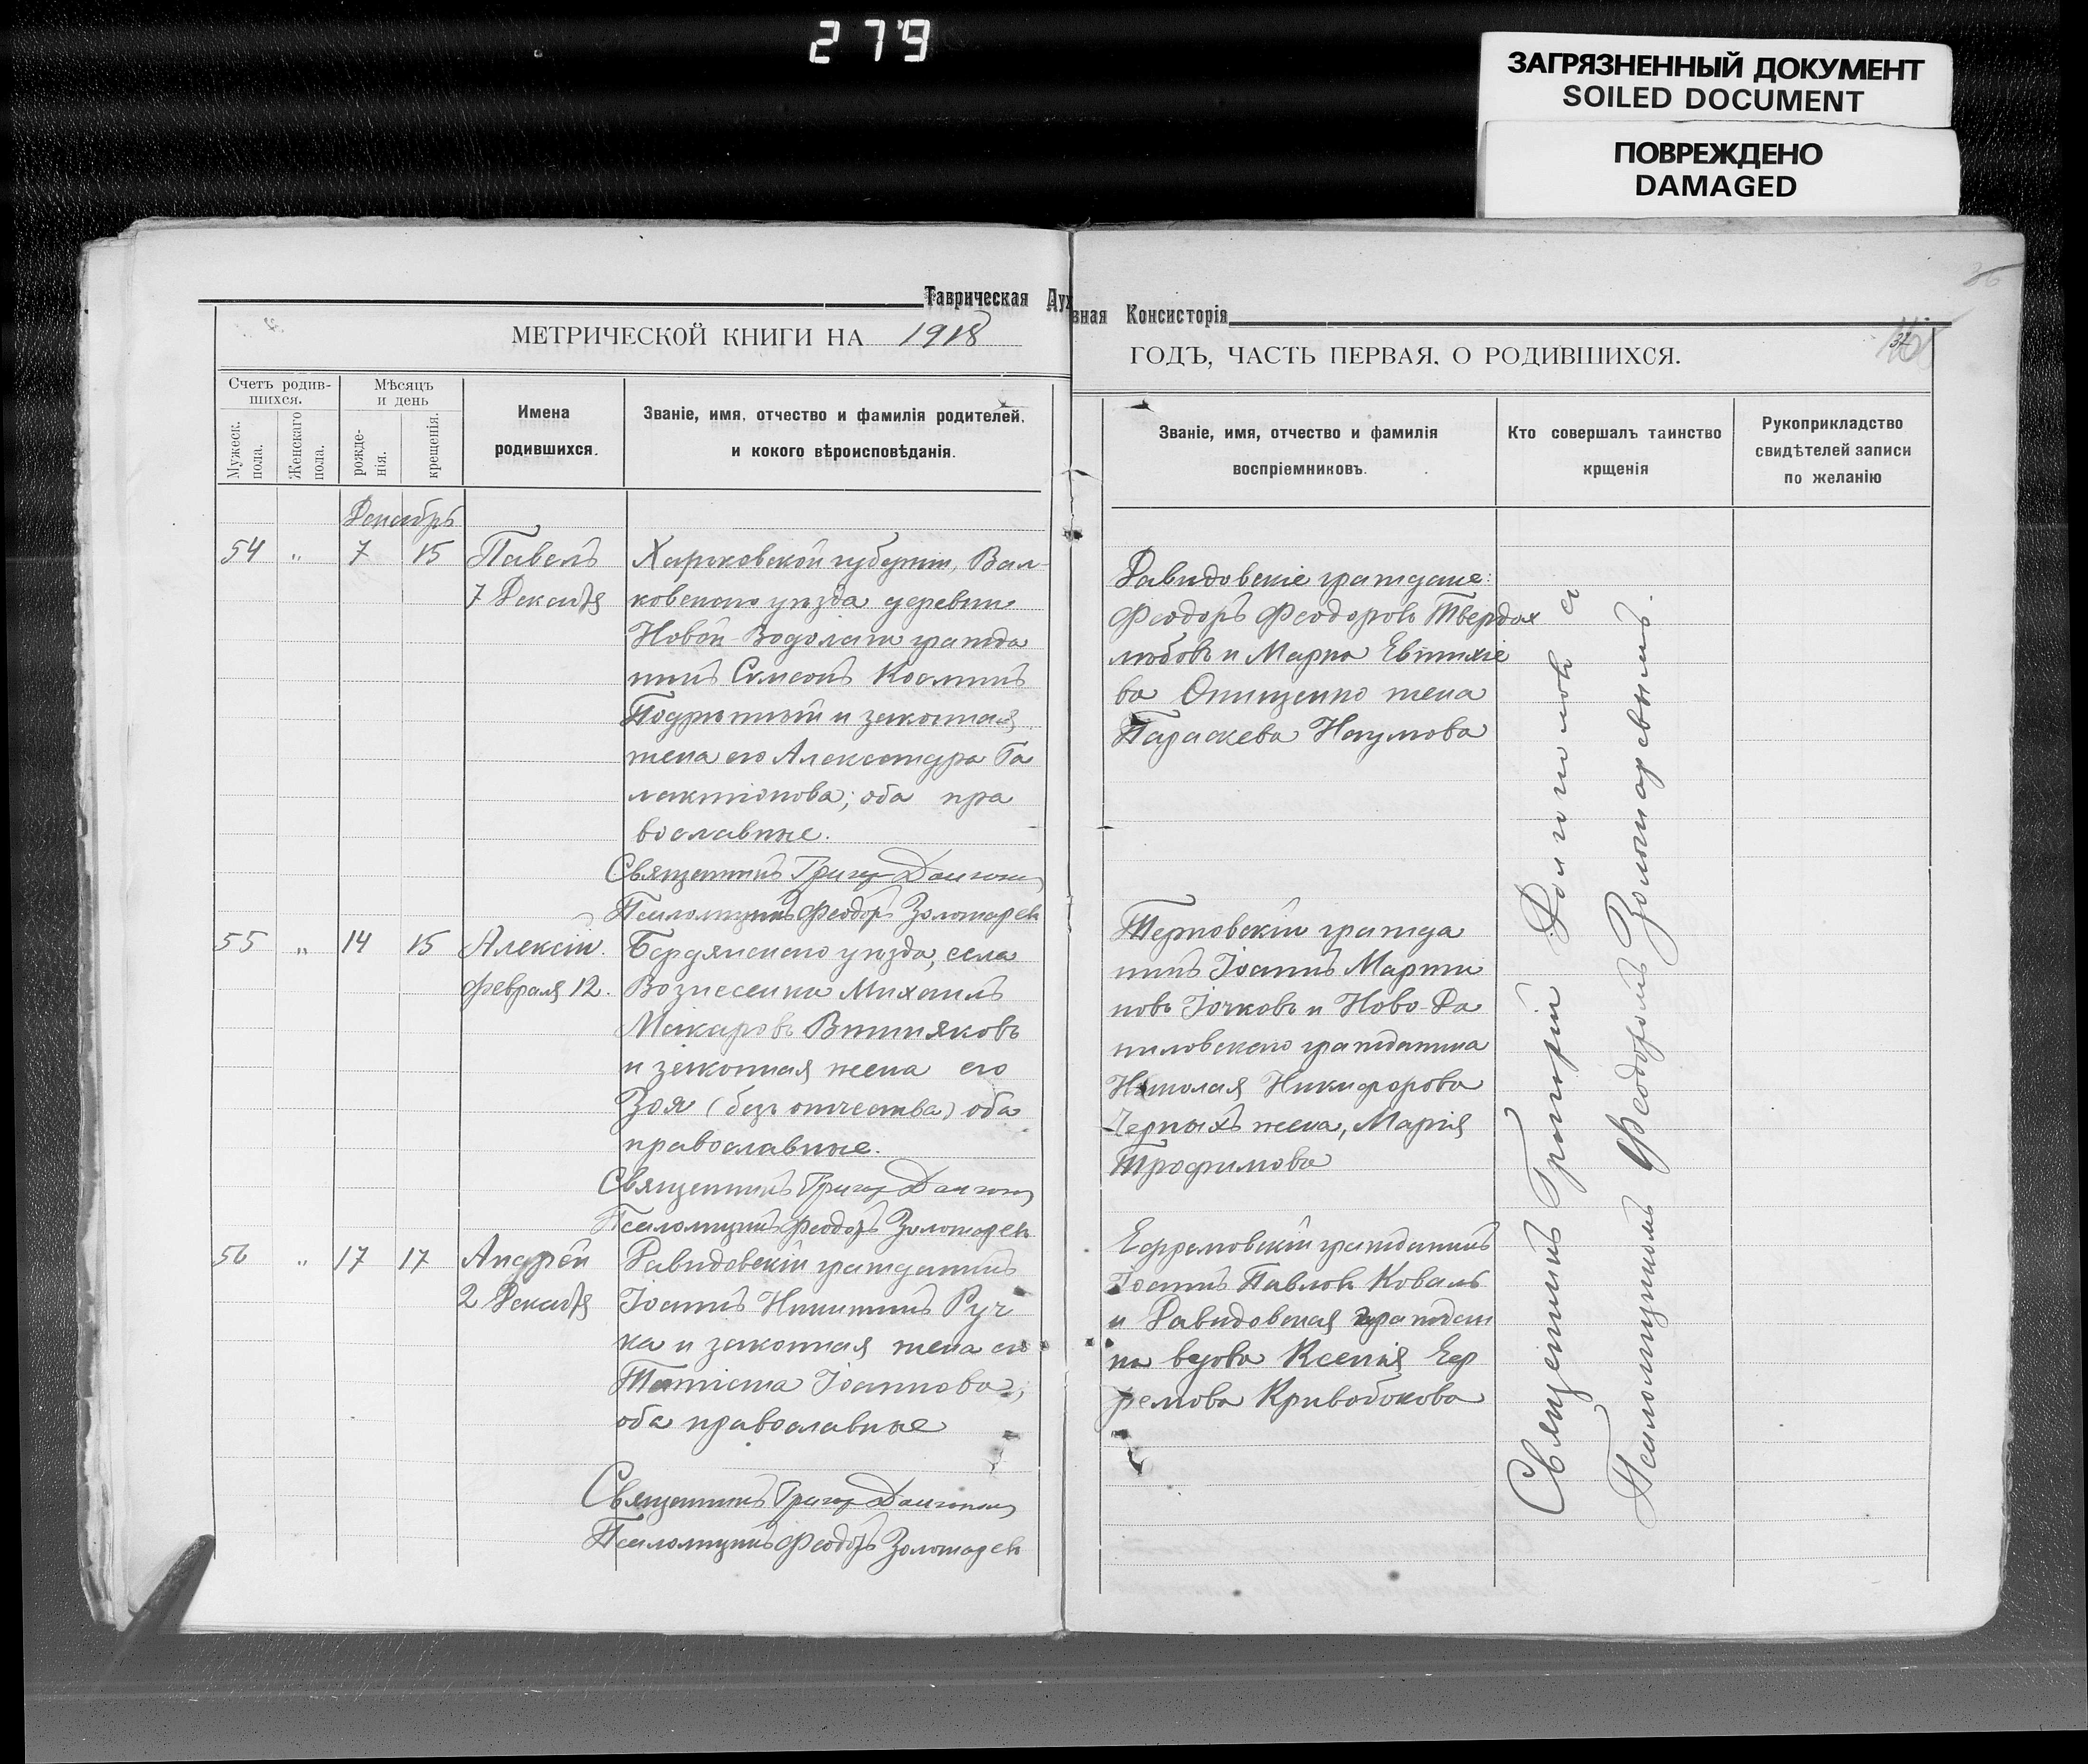 279
ЗАГРЯЗНЕННЫЙ ДОКУМЕНТ
SOILED DOCUMENT
ПОВРЕЖДЕНО
DAMAGED
Таврическая Дух
вная Консисторія
36
37
МЕТРИЧЕСКОЙ КНИГИ НА 1918
ГОДЪ, ЧАСТЬ ПЕРВАЯ, О РОДИВШИХСЯ.
Счетъ родив-
шихся.
Мужеск.
пола.
Женскаго
пола.
Мѣсяцъ
и день
рожде-
нія.
крещенія.
Имена
родившихся.
Званіе, имя, отчество и фамилія родителей,
и кокого вѣроисповѣданія.
Званіе, имя, отчество и фамилія
воспріемниковъ.
Кто совершалъ таинство
крщенія
Рукоприкладство
свидѣтелей записи
по желанію
Декабрь
54 " 7 15 Павелъ
7 Декабря
Харьковской губерніи, Вал-
ковскаго уѣзда деревни
Новой-Водолаги гражда
нинъ Симеонъ Косминъ
и законная
жена его Александра Га
лактіонова; оба пра
вославные.
Священникъ Григор
Псаломщикъ Феодоръ Золотарев
Давидовскіе граждане:
Феодоръ Феодоровъ Твердох
лѣбовъ и Марка Евтихіе
ва Онищенко жена
Параскева Наумова
55 " 14 15 Алексій.
Февраля 12.
Бердянскаго уѣзда, села
Вознесенки Михаилъ
Макаровъ Вишняковъ
и законная жена его
Зоя (безъ отчества) оба
православные.
Священникъ Григор
Псаломщикъ Феодоръ Золотарев
Терновскій гражда
нинъ Іоаннъ Марти
новъ Іочковъ и Ново-Да
ниловскаго гражданина
Николая Никифорова
Черныхъ жена, Марія
Трофимова
56 " 17 17 Андрей
2 Декабря
Давидовскій гражданинъ
Іоаннъ Никитинъ Руч
ка и законная жена его
Татіана Іоаннова;
оба православные
Священникъ Григор
Псаломщикъ Феодоръ Золотарев
Ефремовскій гражданинъ
Іоаннъ Павловъ Коваль
и Давидовская граждан
ка вдова Ксенія Еф
ремова Кривобокова
Священникъ Григорій съ
Псаломщикомъ Феодоромъ Золотаревымъ.